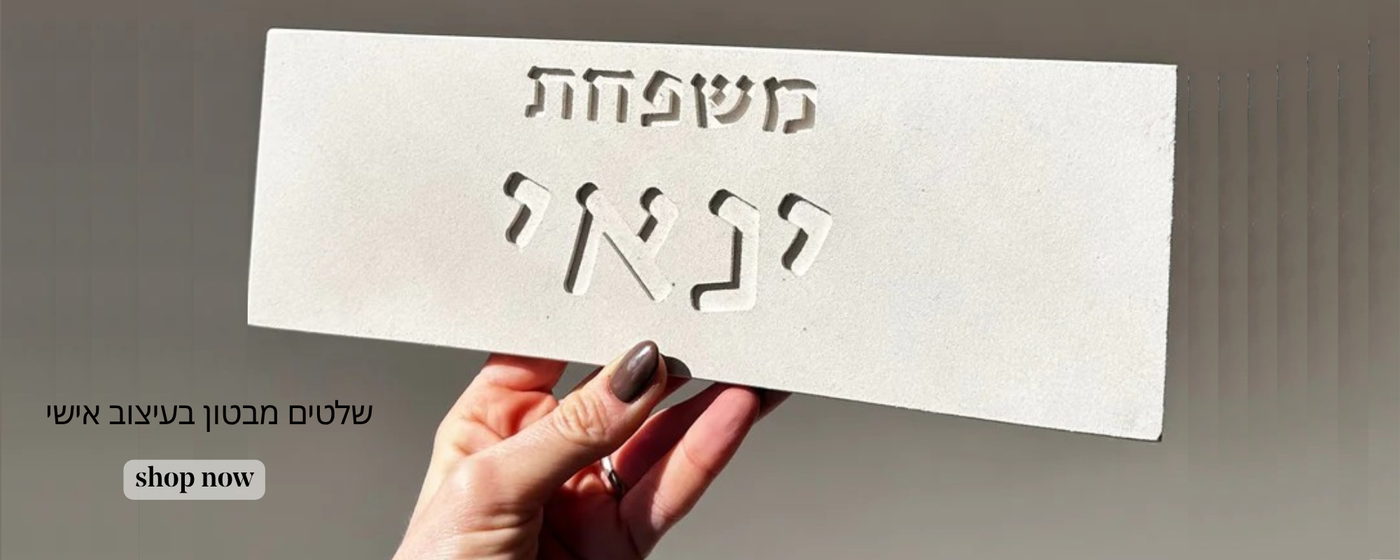 משפחת
ינאי
שלטים מבטון בעיצוב אישי
shop now